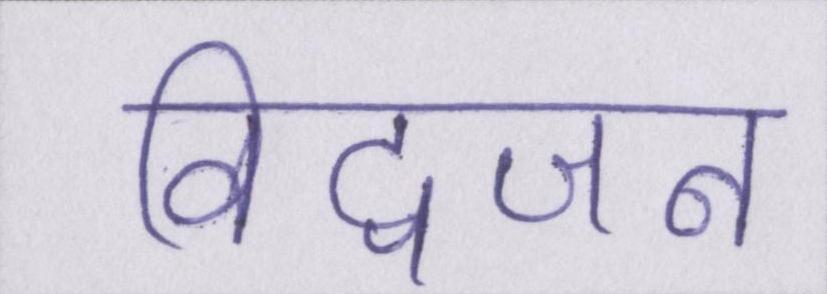 विद्वजन